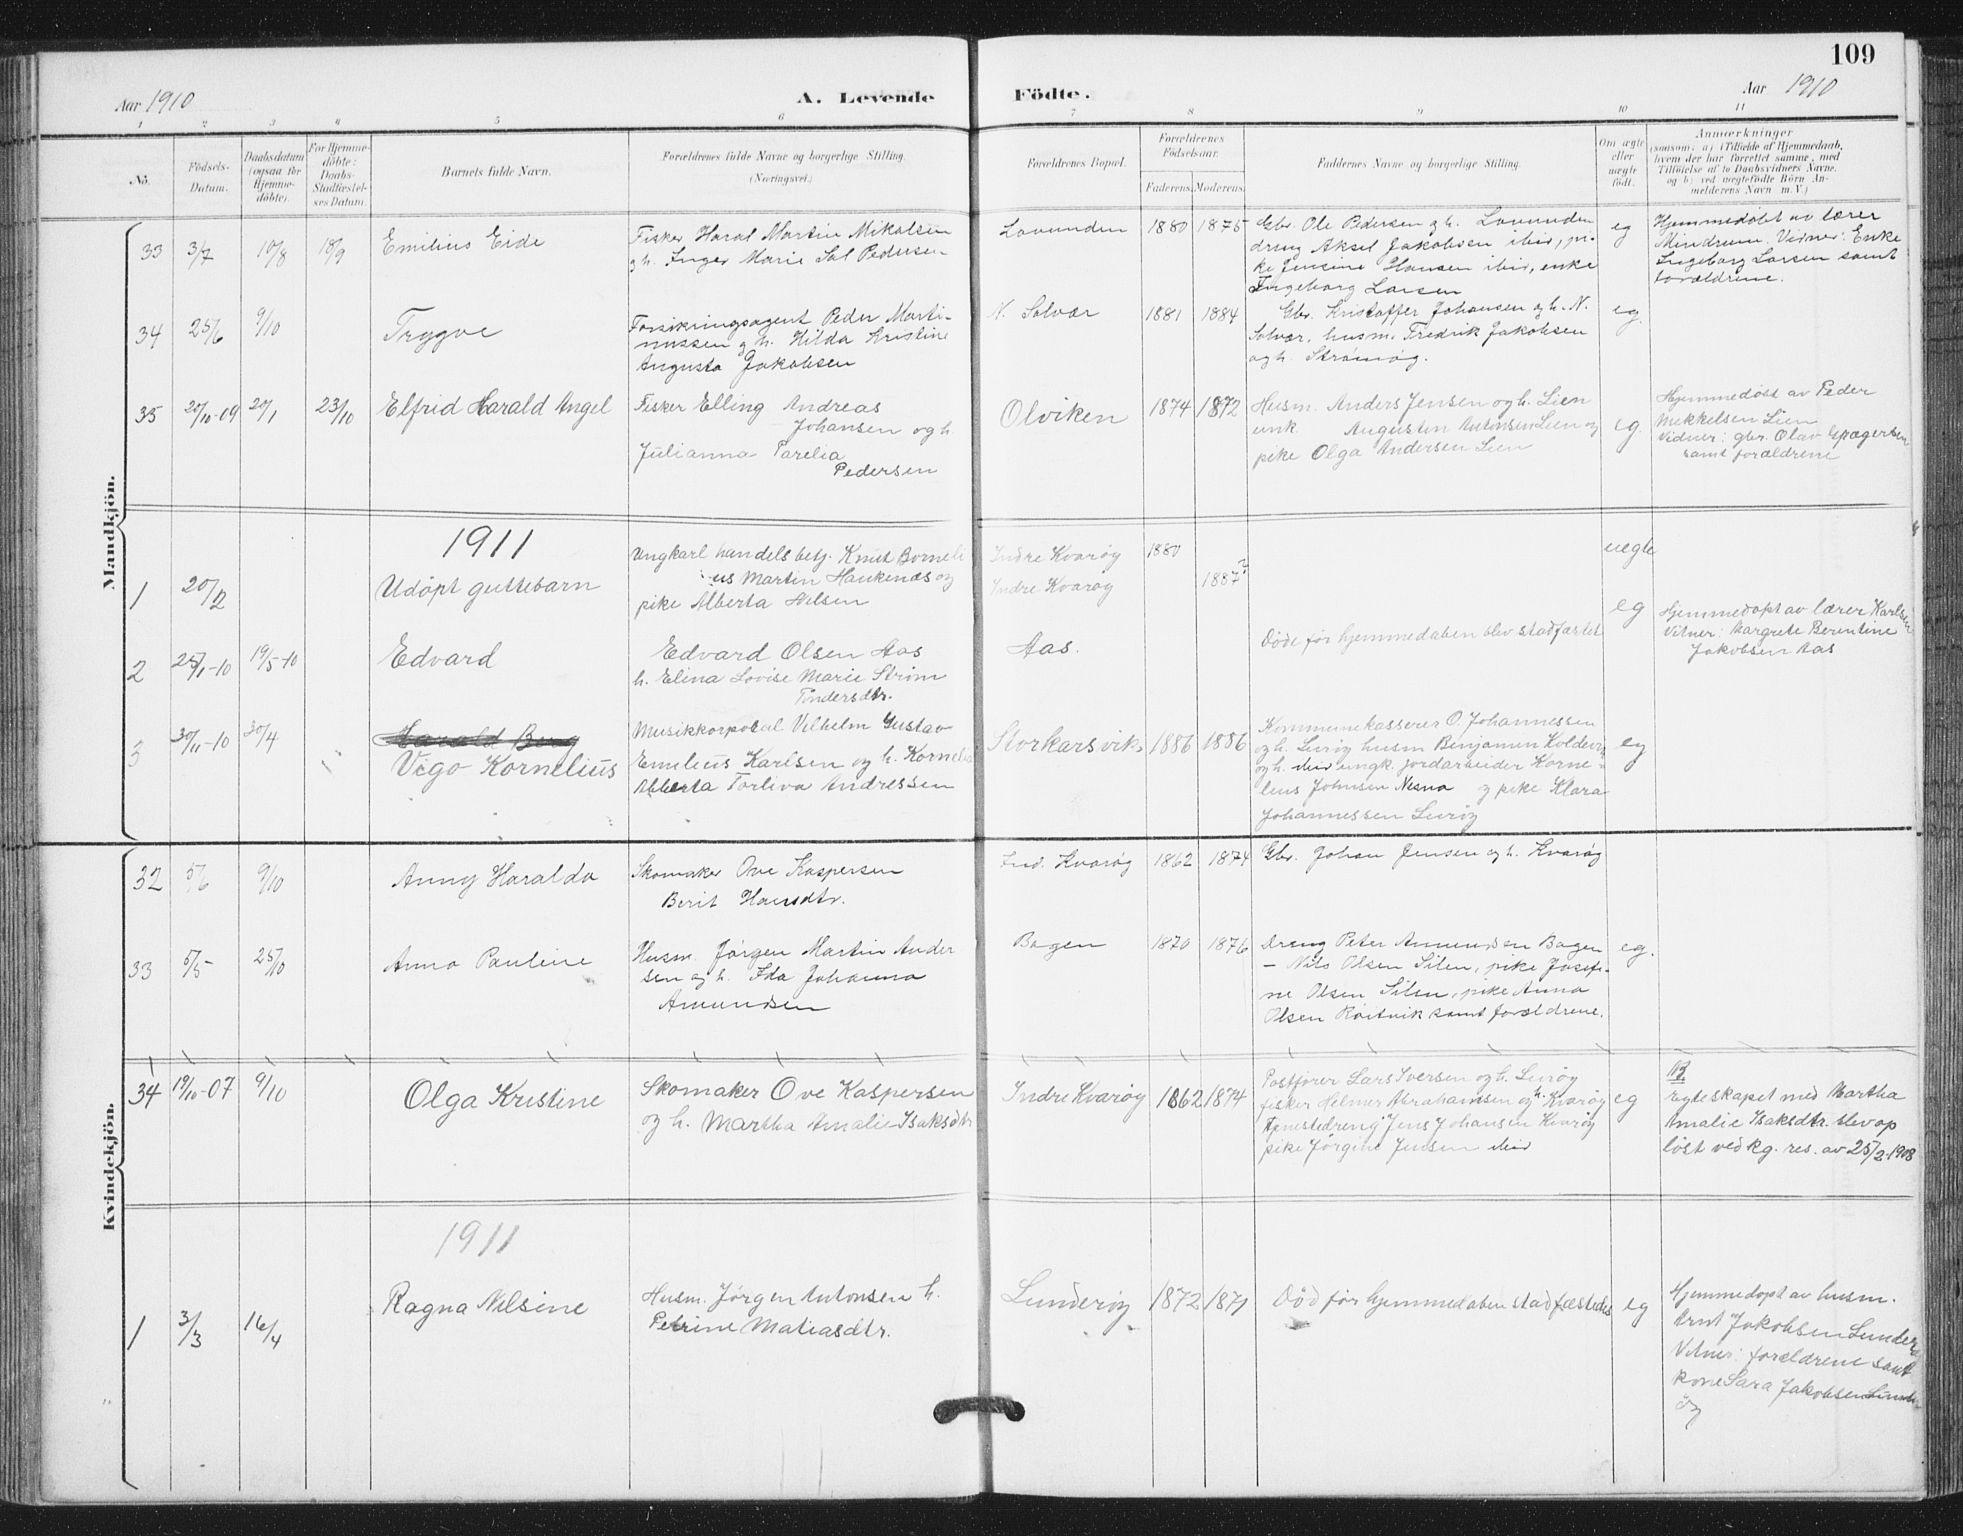 109
Aar 1910
A. Levende Födte.
Aar 1910
1 2 3 4 5 6 7 8 9 10 11
No.
Födsels-Datum.
Daabsdatum (ogsaa for Hjemme-döbte).
For Hjemme-döbte: Daabs-Stadfæstel-ses Datum.
Barnets fulde Navn.
Forældrenes fulde Navne og borgerlige Stilling.
(Næringsvei.)
Forældrenes Bopæl.
Forældrenes Födselsaar.
Faderens. Moderens.
Faddernes Navne og borgerlige Stilling.
Om ægte eller uægte födt.
Anmærkninger
(saasom: a) i Tilfælde af Hjemmedaab,
hvem der har forrettet samme, med
Tilföielse af to Daabsvidners Navne,
og b) ved uægtefödte Börn An-
melderens Navn m. V.)
Mandkjön.
33 3/7 10/8 18/9 Emilius Eide
Fisker Haral Martin Mikalsen
og h. Inger Marie Sal Pedersen
Lovunden 1880 1875
Gbr. Ole Pedersen og h. Lovunden
dreng Aksel Jakobsen ibid, pi-
ke Jensine Hansen ibid, enke
Ingeborg Larsen
eg
Hjemmedøbt av lærer
Mindrum. Vidner: Enke
Ingeborg Larsen samt
forældrene.
34 25/6 9/10 Trygve
Forsikringsagent Peder Marti-
nussen og h. Hilda Kristine
Augusta Jakobsen
N. Solvær 1881 1884
Gbr. Kristoffer Johansen og h. N.
Solvær, husm. Fredrik Jakobsen
og h. Strømøy.
eg.
35 20/10-09 20/1 23/10 Elfrid Harald Angel
Fisker Elling Andreas
Johansen og h.
Julianna Parelia
Pedersen
Olviken 1874 1872
Husm. Anders Jensen og h. Lien
unk. Augustin Antonsen Lien og
pike Olga Andersen Lien
eg.
Hjemmedøbt av Peder
Mikkelsen Lien
Vidner: gbr. Olav
samt forældrene
1911
1 20/2 Udöpt guttebarn
Ungkarl handelsbetj. Knut Borneli
us Martin Haukenæs og
pike Alberta Nilsen
Indre Kvarøy 1880
Indre Kvarøy 1887?
uegte
2 25/1-10 19/5-10 Edvard
Edvard Olsen Aas
h. Elina Lovise Marie Strøm
Tindersdtr.
Aas.
Døde før hjemmedaben blev stadfæstet
eg
Hjemmedøpt av lærer Karlsen
Vitner: Margrete Berentine
Jakobsen Aas
3 30/11-10 30/4 Harald Berg
Vigo Kornelius
Musikkorporal Vilhelm Gustav
Emelius Karlsen og h. Kornelia
Alberta Torliva Andressen
Storkarsvik 1886 1886
Kommunekasserer O. Johannessen
og h. Lurøy husm Benjamin
og h. ibid ungk. jordarbeider Korne-
lius Johnsen Nesna og pike Klara
Johannessen Lurøy
eg
Kvindekjön.
32 5/6 9/10 Anny Haralda
Skomaker Ove Kaspersen
Berit Hansdtr.
Ind. Kvarøy 1862 1874
Gbr. Johan Jensen og h. Kvarøy
33 5/5 25/10 Anna Pauline
Husm. Jørgen Martin Ander
sen og h. Ida Johanna
Amundsen
Bogen 1870 1876
Dreng Peter Amundsen Bogen
- Nils Olsen Silen, pike Josefi-
ne Olsen Silen, pike Anna
Olsen Røitvik samt forældrene.
eg.
34 19/10-07 9/10 Olga Kristine
Skomaker Ove Kaspersen
og h. Martha Amalie Isaksdtr
Indre Kvarøy 1862 1874
Postfører Lars Iversen og h. Lurøy
fisker Helmer Abrahamsen og h. Kvarøy
Jens Johansen Kvarøy
pike Jørgine Jensen ibid
eg
NB
Egteskapet med Martha
Amalie Isaksdtr. blev op
løst ved kg. res. av 25/2-1908
1911
1 3/3 16/4 Ragna Nilsine
Husm. Jørgen Antonsen h.
Petrine Matiasdtr.
Lunderøy 1872 1871
Död før hjemmedaben stadfæstedes
eg
Hjemmedøpt av husm.
Arnt Jakobsen Lunderø
Vitner: forældrene samt
kone Sara Jakobsen Lunder-
öy